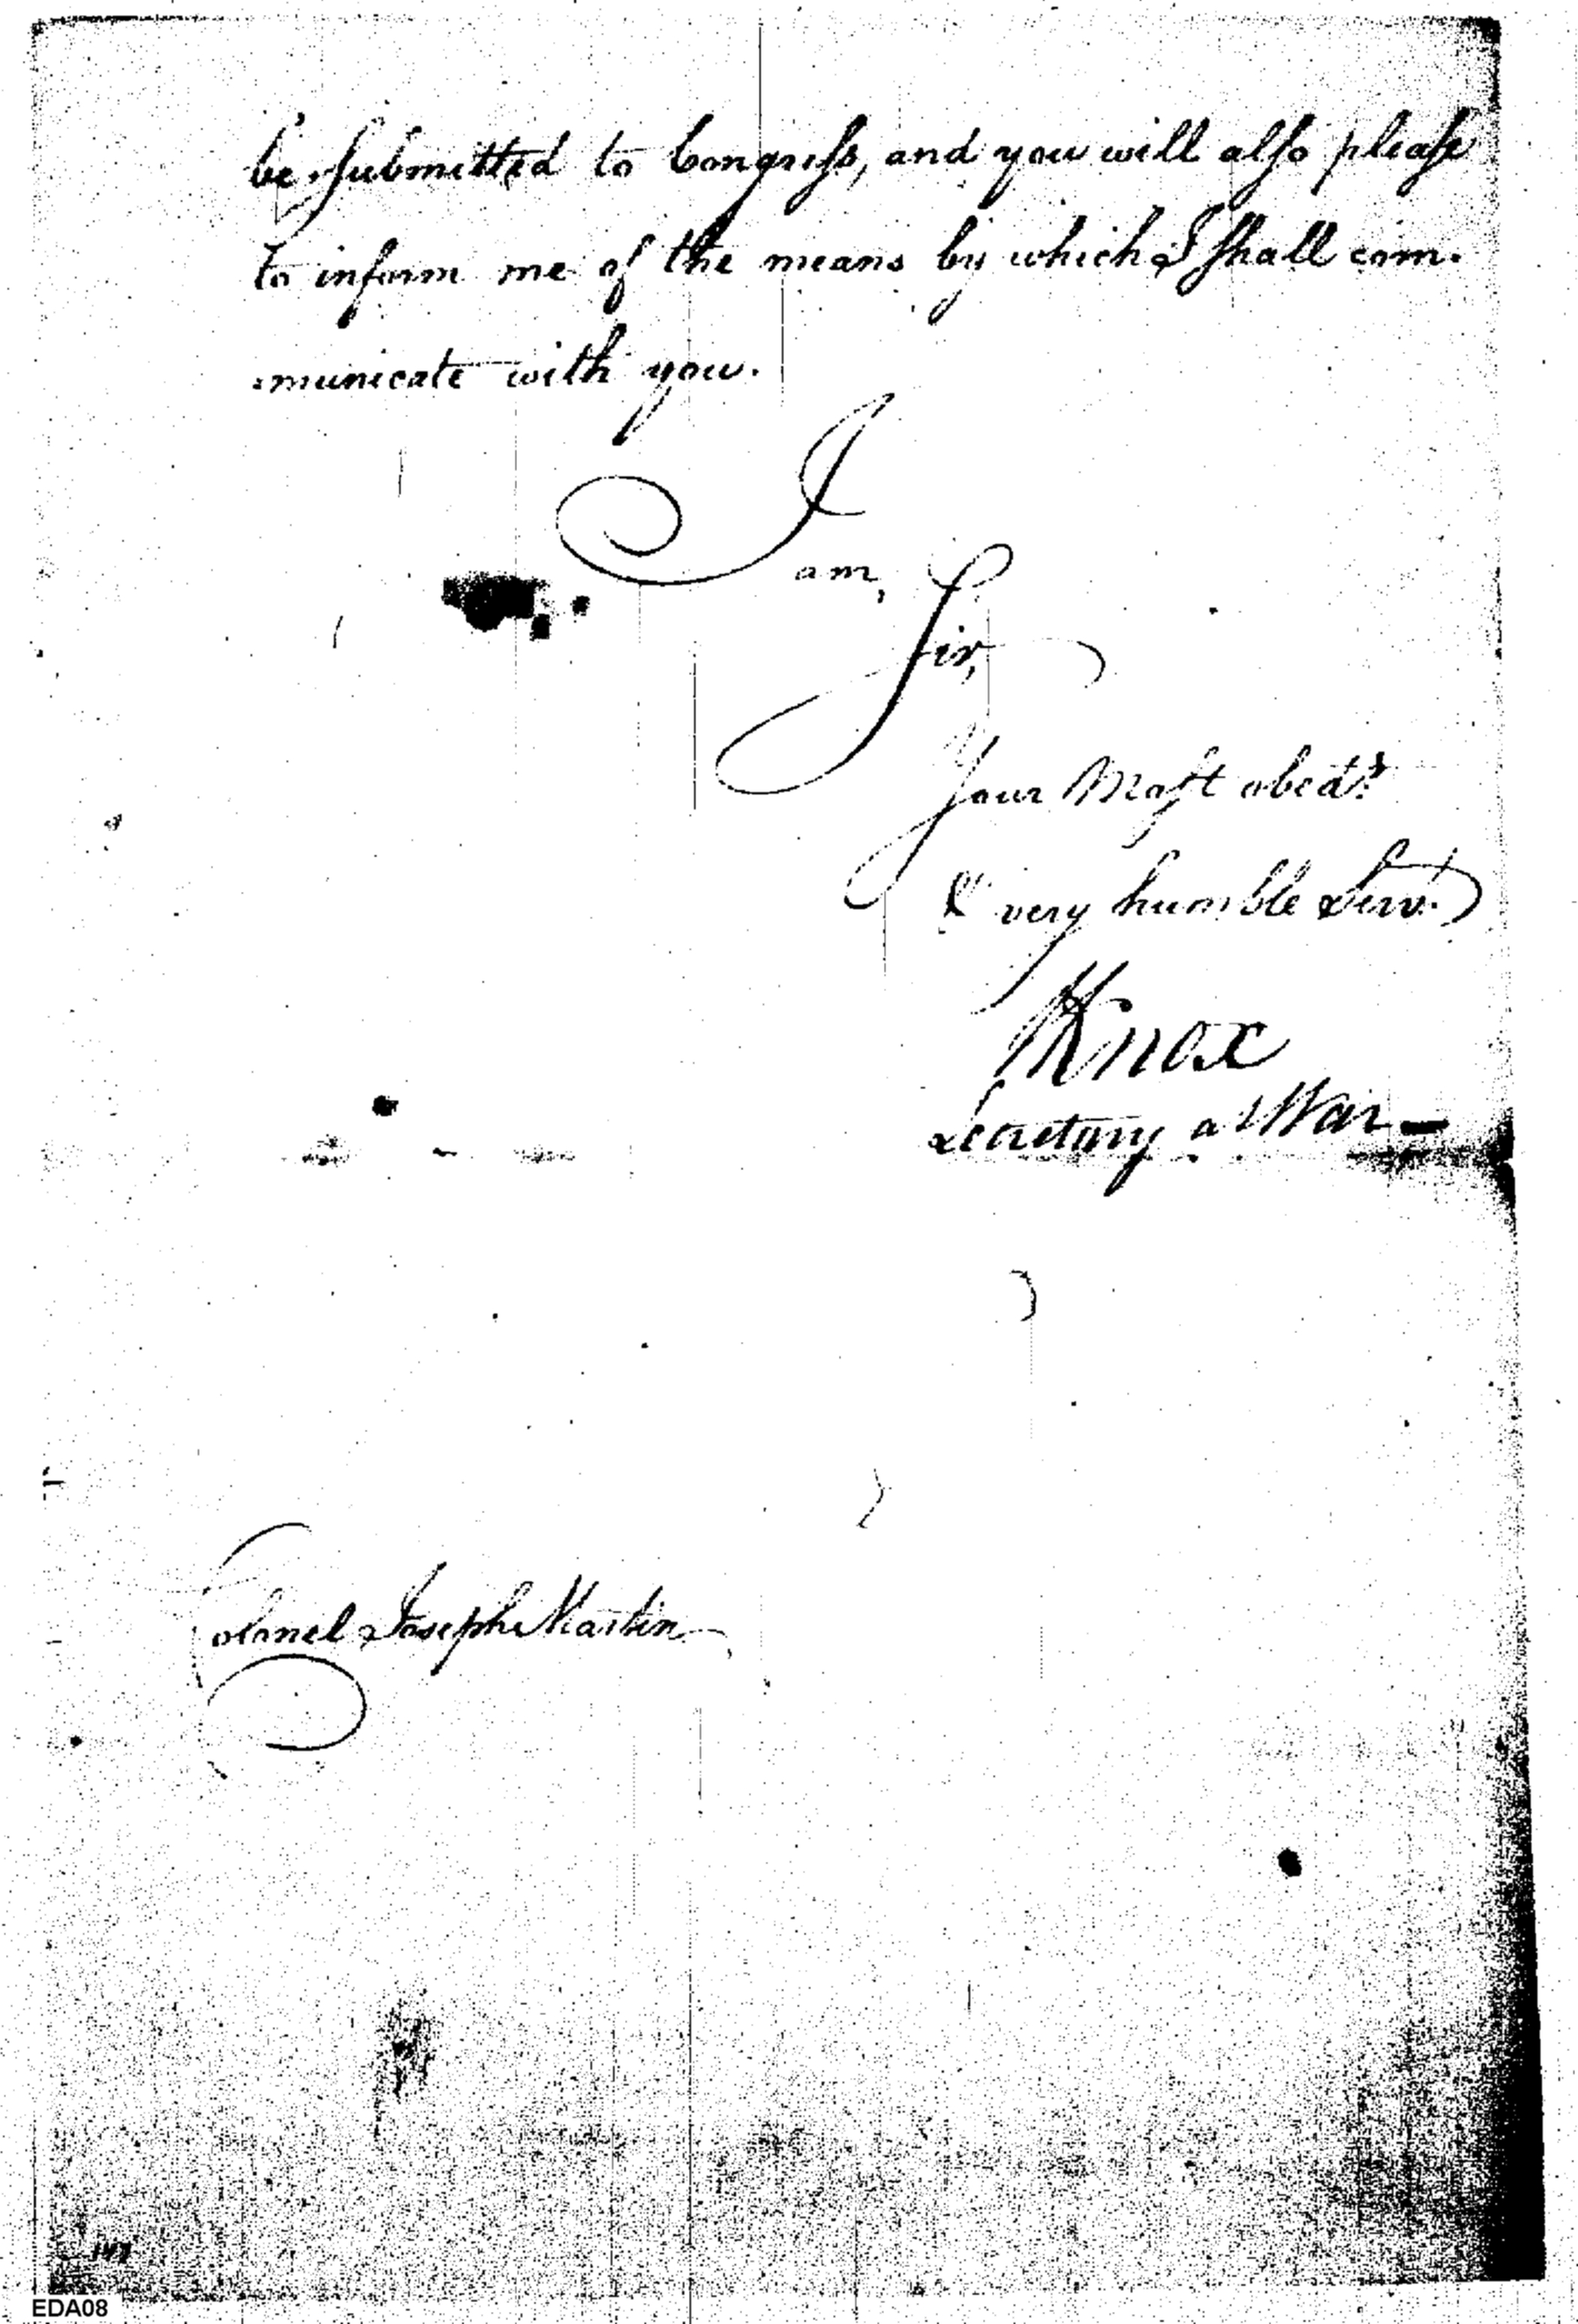 be submitted to Congress, and you will also please
to inform me of the means by which I shall com-
municate with you.
I
am,
Sir,
Your Most obedt.
& very humble Servt.
HKnox
Secretary at War
Colonel Joseph Martin
EDA08